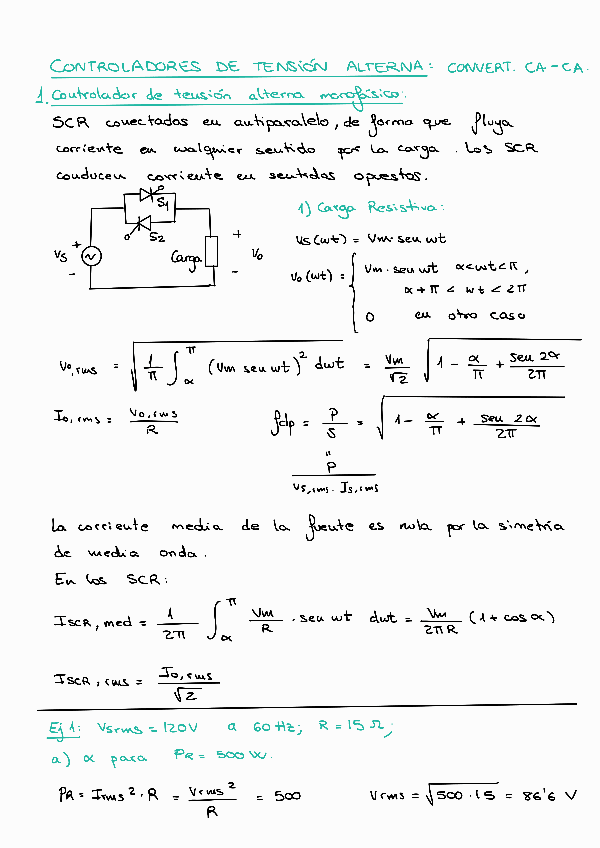 CONTROLADORES DE TENSIÓN ALTERNA: CONVERT. CA-CA.
1. Controlador de tensión alterna monofásico:
SCR conectados en antiparalelo, de forma que fluya
corriente en cualquier sentido por la carga. Los SCR
conducen corriente en sentidos opuestos.
S1
S2
Vs
+
-
Carga
+
-
Vo
1) Carga Resistiva:
Vs(wt) = Vm·sen wt
Vo(wt) = { Vm·sen wt α<wt<π,
α+π < wt < 2π
0 en otro caso
Vo,rms = √(1/π ∫_α^π (Vm sen wt)² dwt) = Vm/√2 √(1 - α/π + sen 2α/2π)
Io,rms = Vo,rms/R fdp = P/S = √(1 - α/π + sen 2α/2π)
"
P/(Vs,rms · Is,rms)
La corriente media de la fuente es nula por la simetría
de media onda.
En los SCR:
ISCR, med = 1/2π ∫_α^π Vm/R · sen wt dwt = Vm/2πR (1 + cos α)
ISCR, rms = Io,rms/√2
Ej 1: Vsrms = 120V a 60 Hz; R = 15 Ω;
a) α para PR = 500 W.
PR = Irms² · R = Vrms²/R = 500 Vrms = √(500 · 15) = 86'6 V